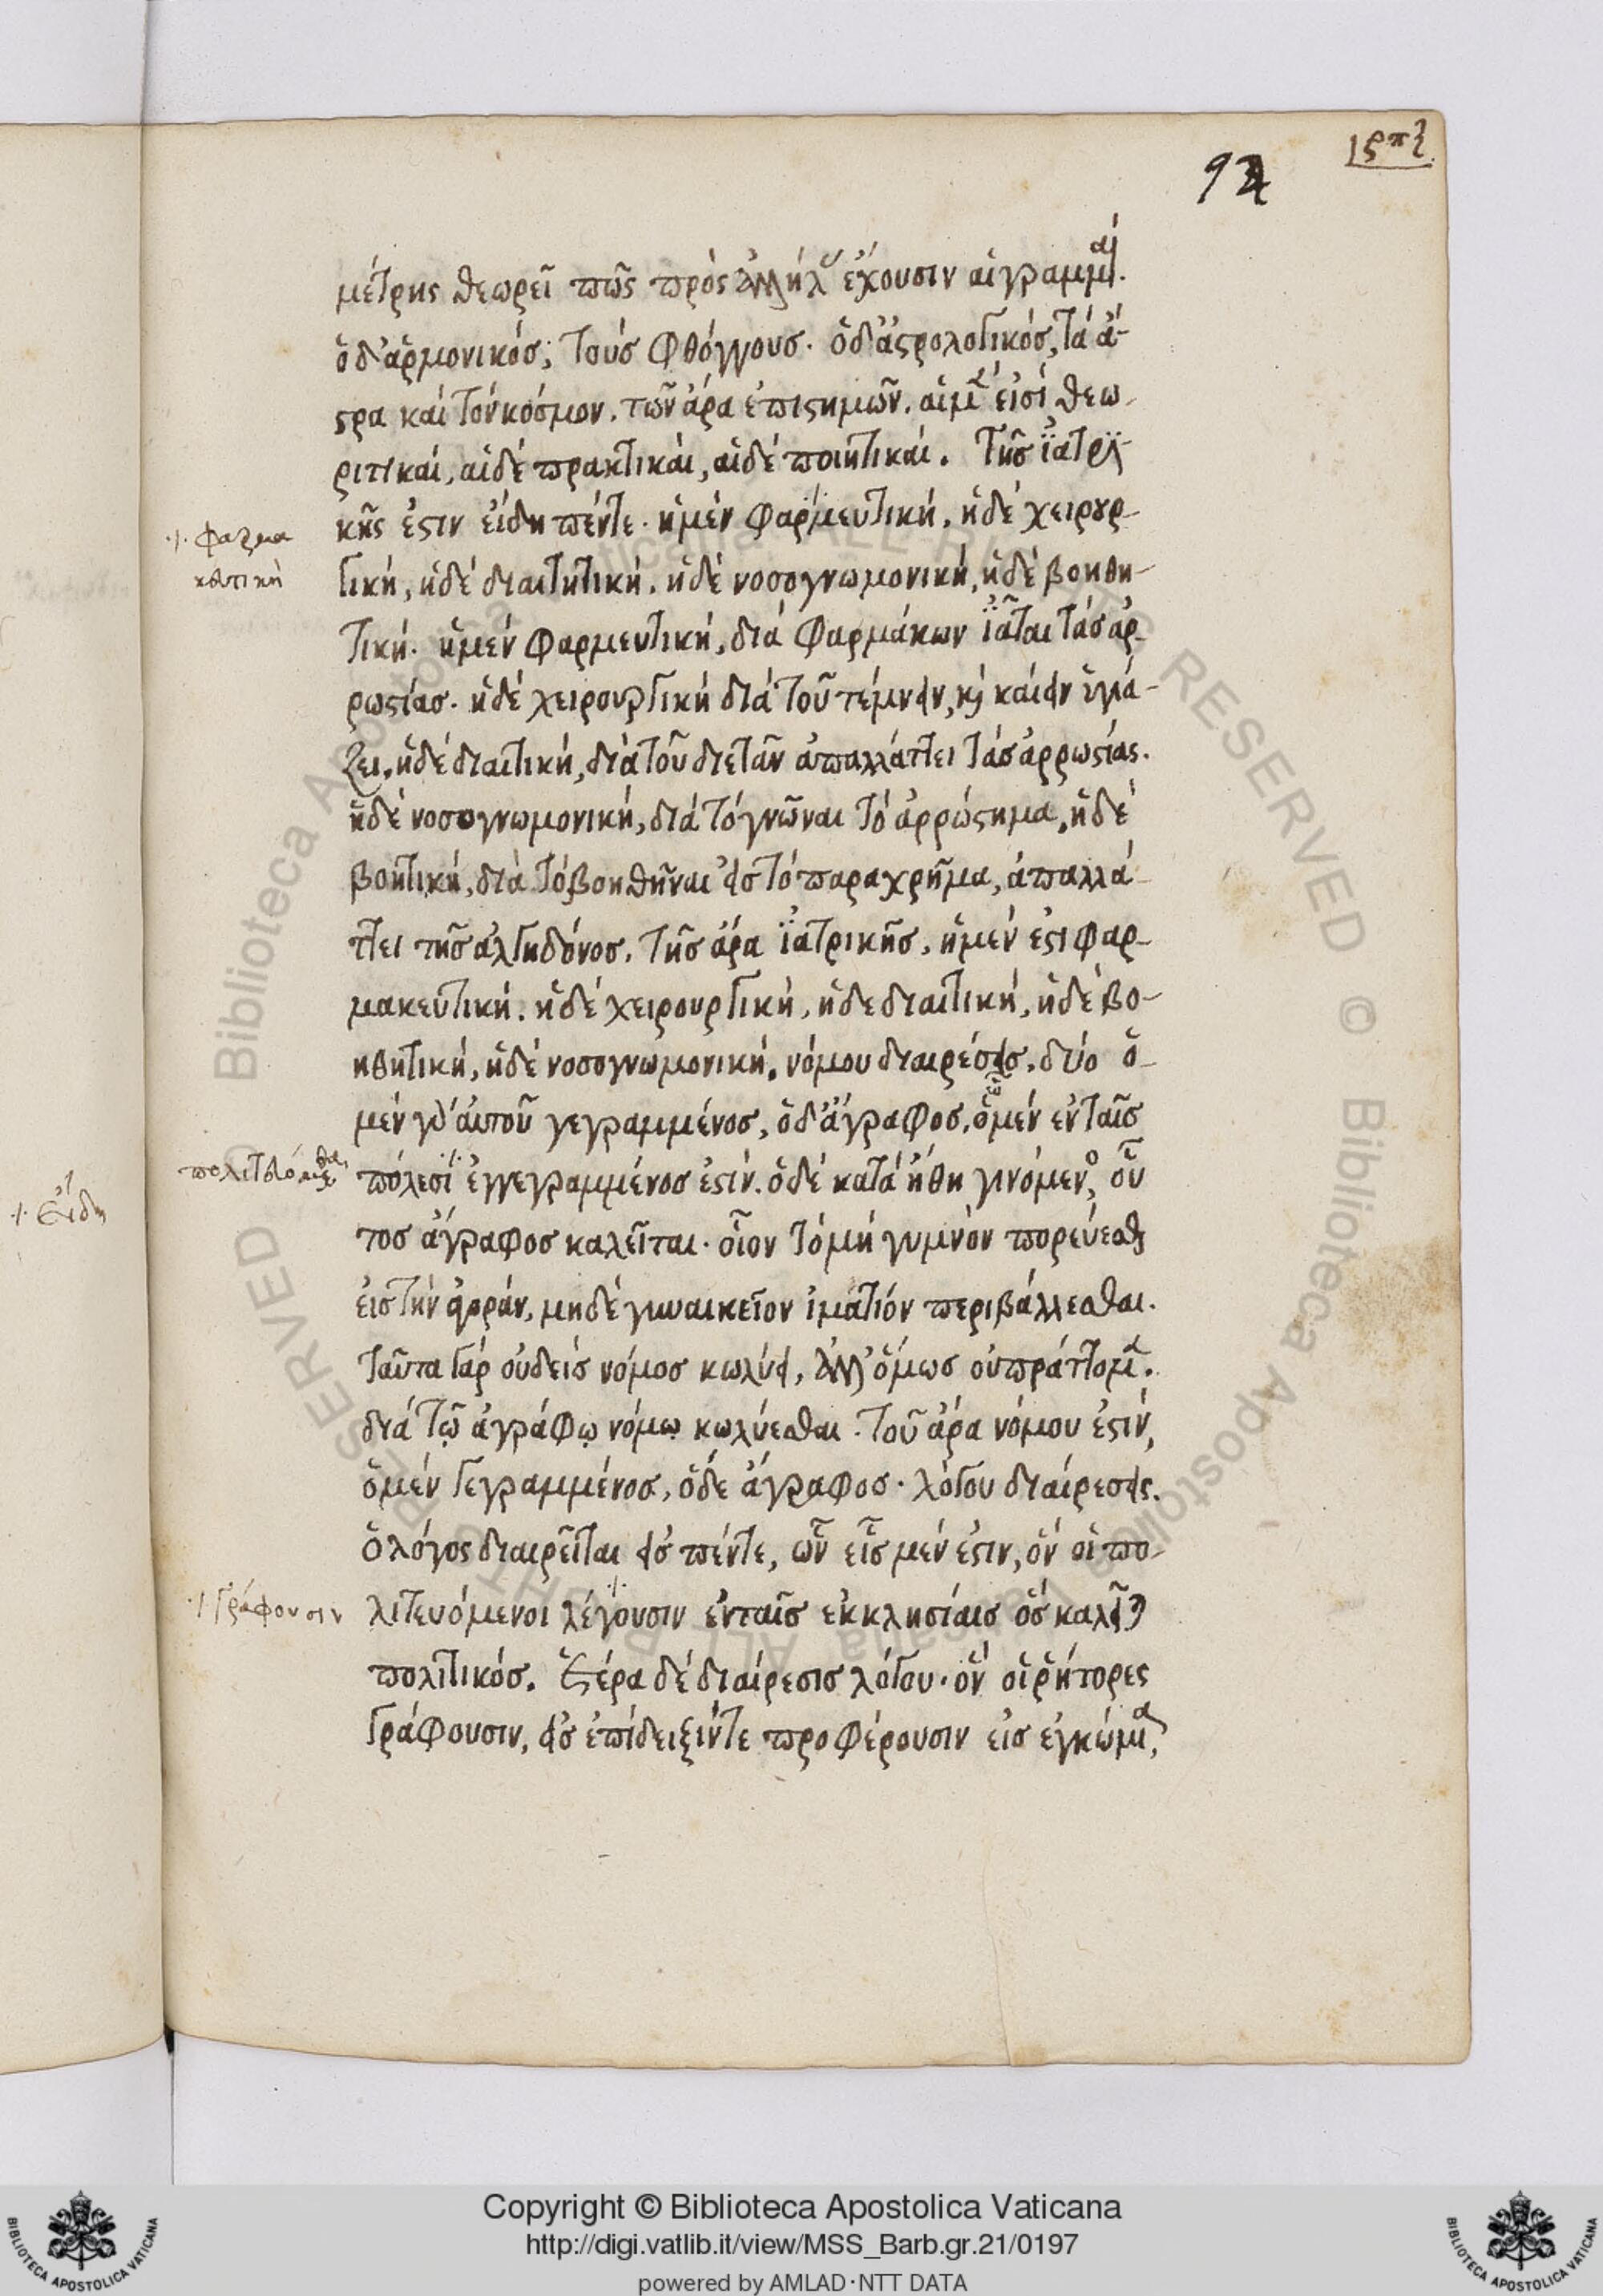 92
μέτρης θεωρεῖ πῶς πρὸς ἀλλήλ ἔχουσιν αἱ γραμμαί.
ὁ δ' ἁρμονικός, τοὺς φθόγγους. ὁ δ' ἀστρολογικός, τὰ ἄ-
στρα καὶ τὸν κόσμον. τῶν ἄρα ἐπιστημῶν, αἱ μὲν εἰσὶ θεω-
ριτικαὶ, αἱ δὲ πρακτικαὶ, αἱ δὲ ποιητικαί. τῆς ἰατρι-
κῆς ἐστιν εἴδη πέντε. ἡ μὲν φαρμευτική, ἡ δὲ χειρουρ-
γική, ἡ δὲ διαιτητική, ἡ δὲ νοσογνωμονική, ἡ δὲ βοηθη-
τική. ἡ μὲν φαρμευτική, διὰ φαρμάκων ἰᾶται τὰς ἀρ-
ρωστίας. ἡ δὲ χειρουργική διὰ τοῦ τέμνειν, καὶ καίειν ὑγιά-
ζει, ἡ δὲ διαιτική, διὰ τοῦ διετᾶν ἀπαλλάττει τὰς ἀρρωστίας.
ἡ δὲ νοσογνωμονική, διὰ τὸ γνῶναι τὸ ἀρρώστημα, ἡ δὲ
βοητική, διὰ τὸ βοηθῆναι εἰς τὸ παραχρῆμα, ἀπαλλά-
ττει τῆς ἀλγηδόνος. τῆς ἄρα ἰατρικῆς, ἡ μὲν ἐστι φαρ-
μακευτική. ἡ δὲ χειρουργική, ἡ δὲ διαιτική, ἡ δὲ βο-
ηθητική, ἡ δὲ νοσογνωμονική. νόμου διαιρέσεις, δύο ὁ
μὲν αὐτοῦ γεγραμμένος, ὁ δ' ἄγραφος, ὁ μὲν ἐν ταῖς
πόλεσι ἐγγεγραμμένος ἐστίν. ὁ δὲ κατὰ ἤθη γινόμενος, οὗ
τος ἄγραφος καλεῖται. οἷον τὸ μὴ γυμνὸν πορεύεσθαι
εἰς τὴν ἀγοράν, μηδὲ γυναικεῖον ἱμάτιον περιβάλλεσθαι.
ταῦτα γὰρ οὐδεὶς νόμος κωλύει, ἀλλ' ὅμως οὐ πράττομεν.
διὰ τῷ ἀγράφῳ νόμῳ κωλύεσθαι. τοῦ ἄρα νόμου ἐστίν,
ὁ μὲν γεγραμμένος, ὁ δὲ ἄγραφος. λόγου διαίρεσεις.
ὁ λόγος διαιρεῖται εἰς πέντε, ὧν εἷς μέν ἐστιν, ὃν οἱ πο-
λιτευόμενοι λέγουσιν ἐν ταῖς ἐκκλησίαις ὃς καλεῖται
πολιτικός. ἑτέρα δὲ διαίρεσις λόγου. ὃν οἱ ῥήτορες
γράφουσιν, εἰς ἐπίδειξίν τε προφέρουσιν εἰς ἐγκώμια,
φαρμα
κευτική
εἴδη
γράφουσιν
Copyright © Biblioteca Apostolica Vaticana
http://digi.vatlib.it/view/MSS_Barb.gr.21/0197
powered by AMLAD·NTT DATA
BIBLIOTECA APOSTOLICA VATICANA
BIBLIOTECA APOSTOLICA VATICANA
Biblioteca Apostolica Vaticana ALL RIGHTS RESERVED ©